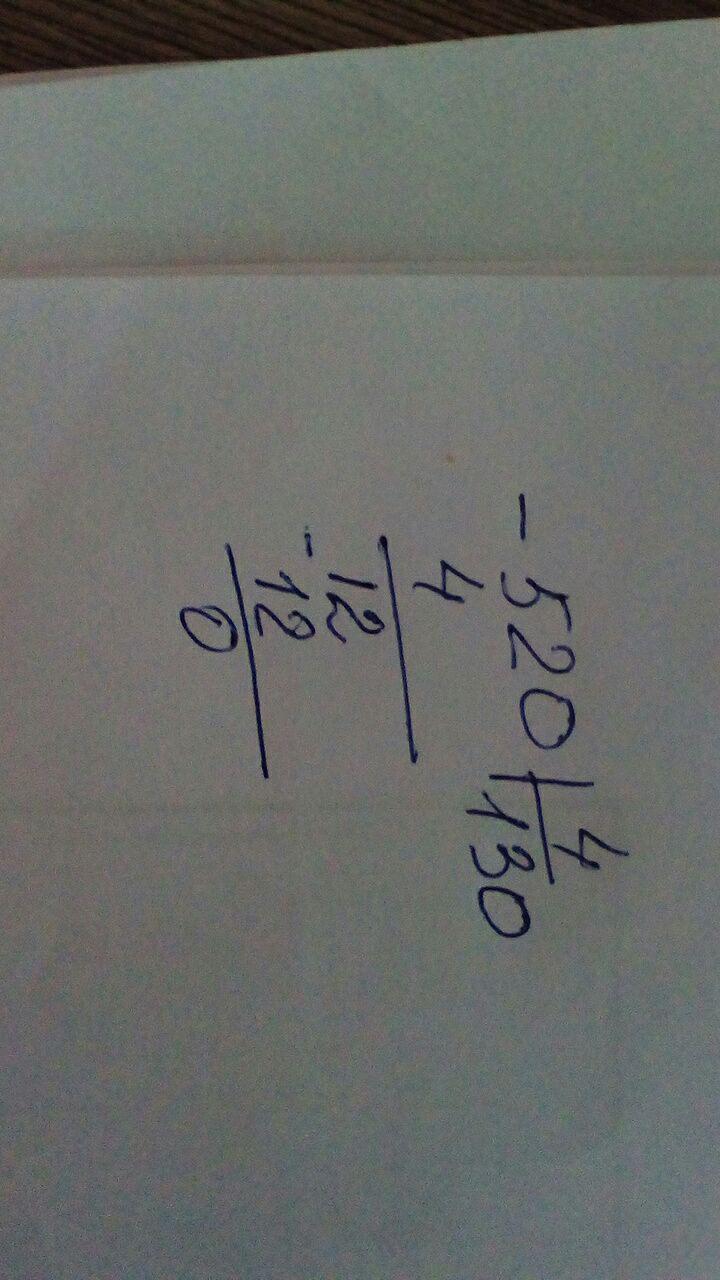 -520|4
4 130
12
-12
0